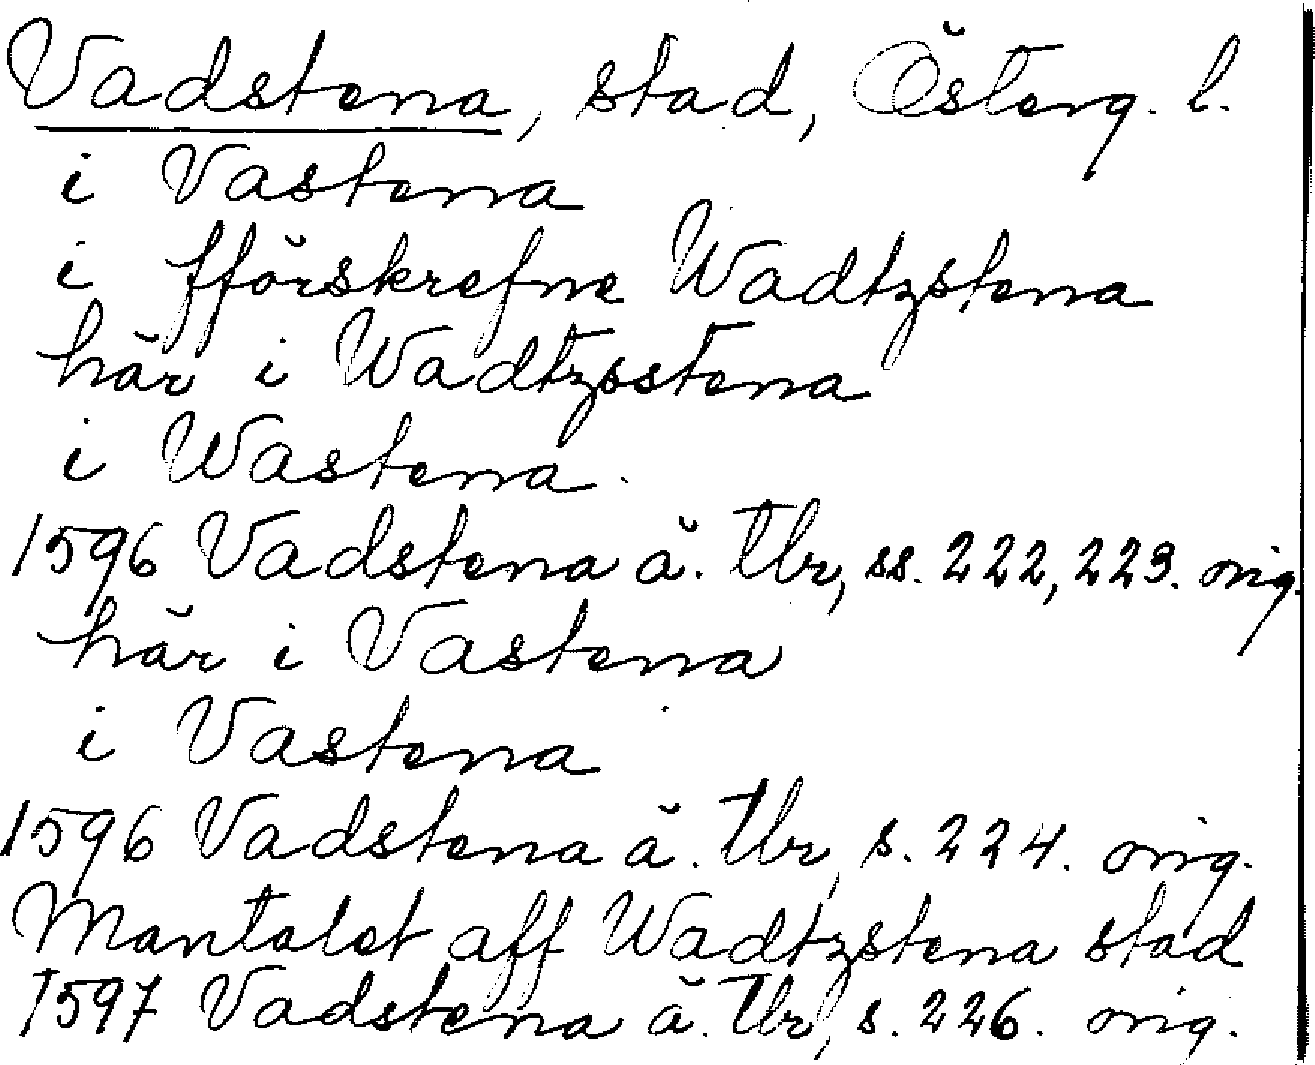 Vadstena, stad, Österg. l.
i Vastena
i fförskrefne Wadtzstena
här i Wadtzsstena
i Wastena
1596 Vadstena ä. Tbr, ss. 222, 223. orig.
här i Vastena
i Vastena
1596 Vadstena ä. Tbr, s. 224. orig.
Mantalet aff Wadtzstena stad
1597 Vadstena ä. Tbr, s. 226. orig.